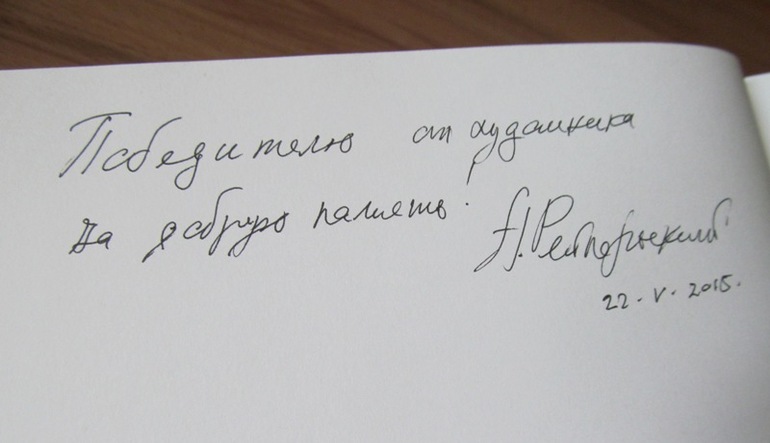 Победителю от художника
на добрую память!
22. V. 2015.